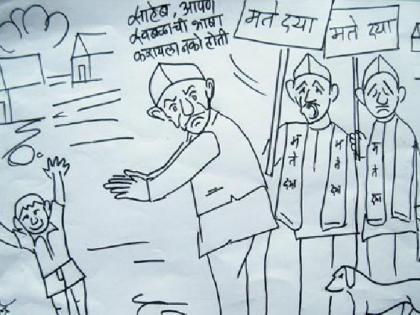 साहेब, आपण
स्वबळाची भाषा
करायला नको होती
मते दया
मते दया
म
ते
दया
म
ते
दया
म
ते
दया